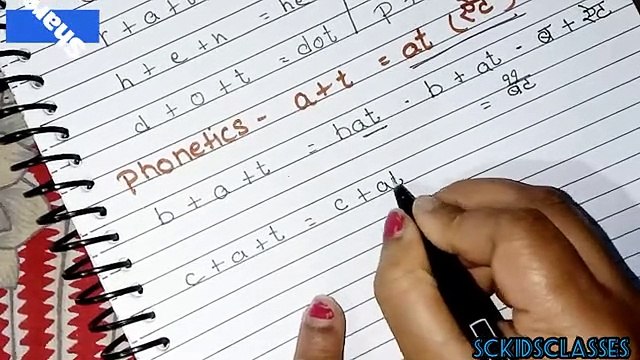 Share
r + a + t
h + e + n = he
d + o + t = dot
p
Phonetics - a + t = at (ऐट)
b + a + t = bat - b + at - ब + ऐट
= बैट
c + a + t = c + at
SCKIDSCLASSES